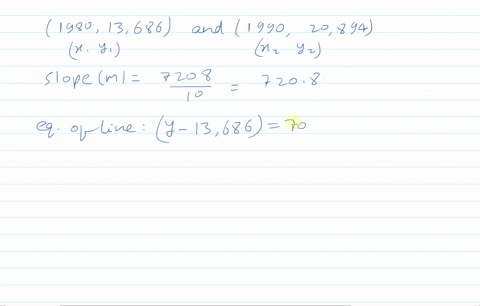 (1980, 13,686) and (1990, 20,894)
(x₁ y₁) (x₂ y₂)
slope (m) = 7208/10 = 720.8
eq. of line: (y - 13,686) = 70